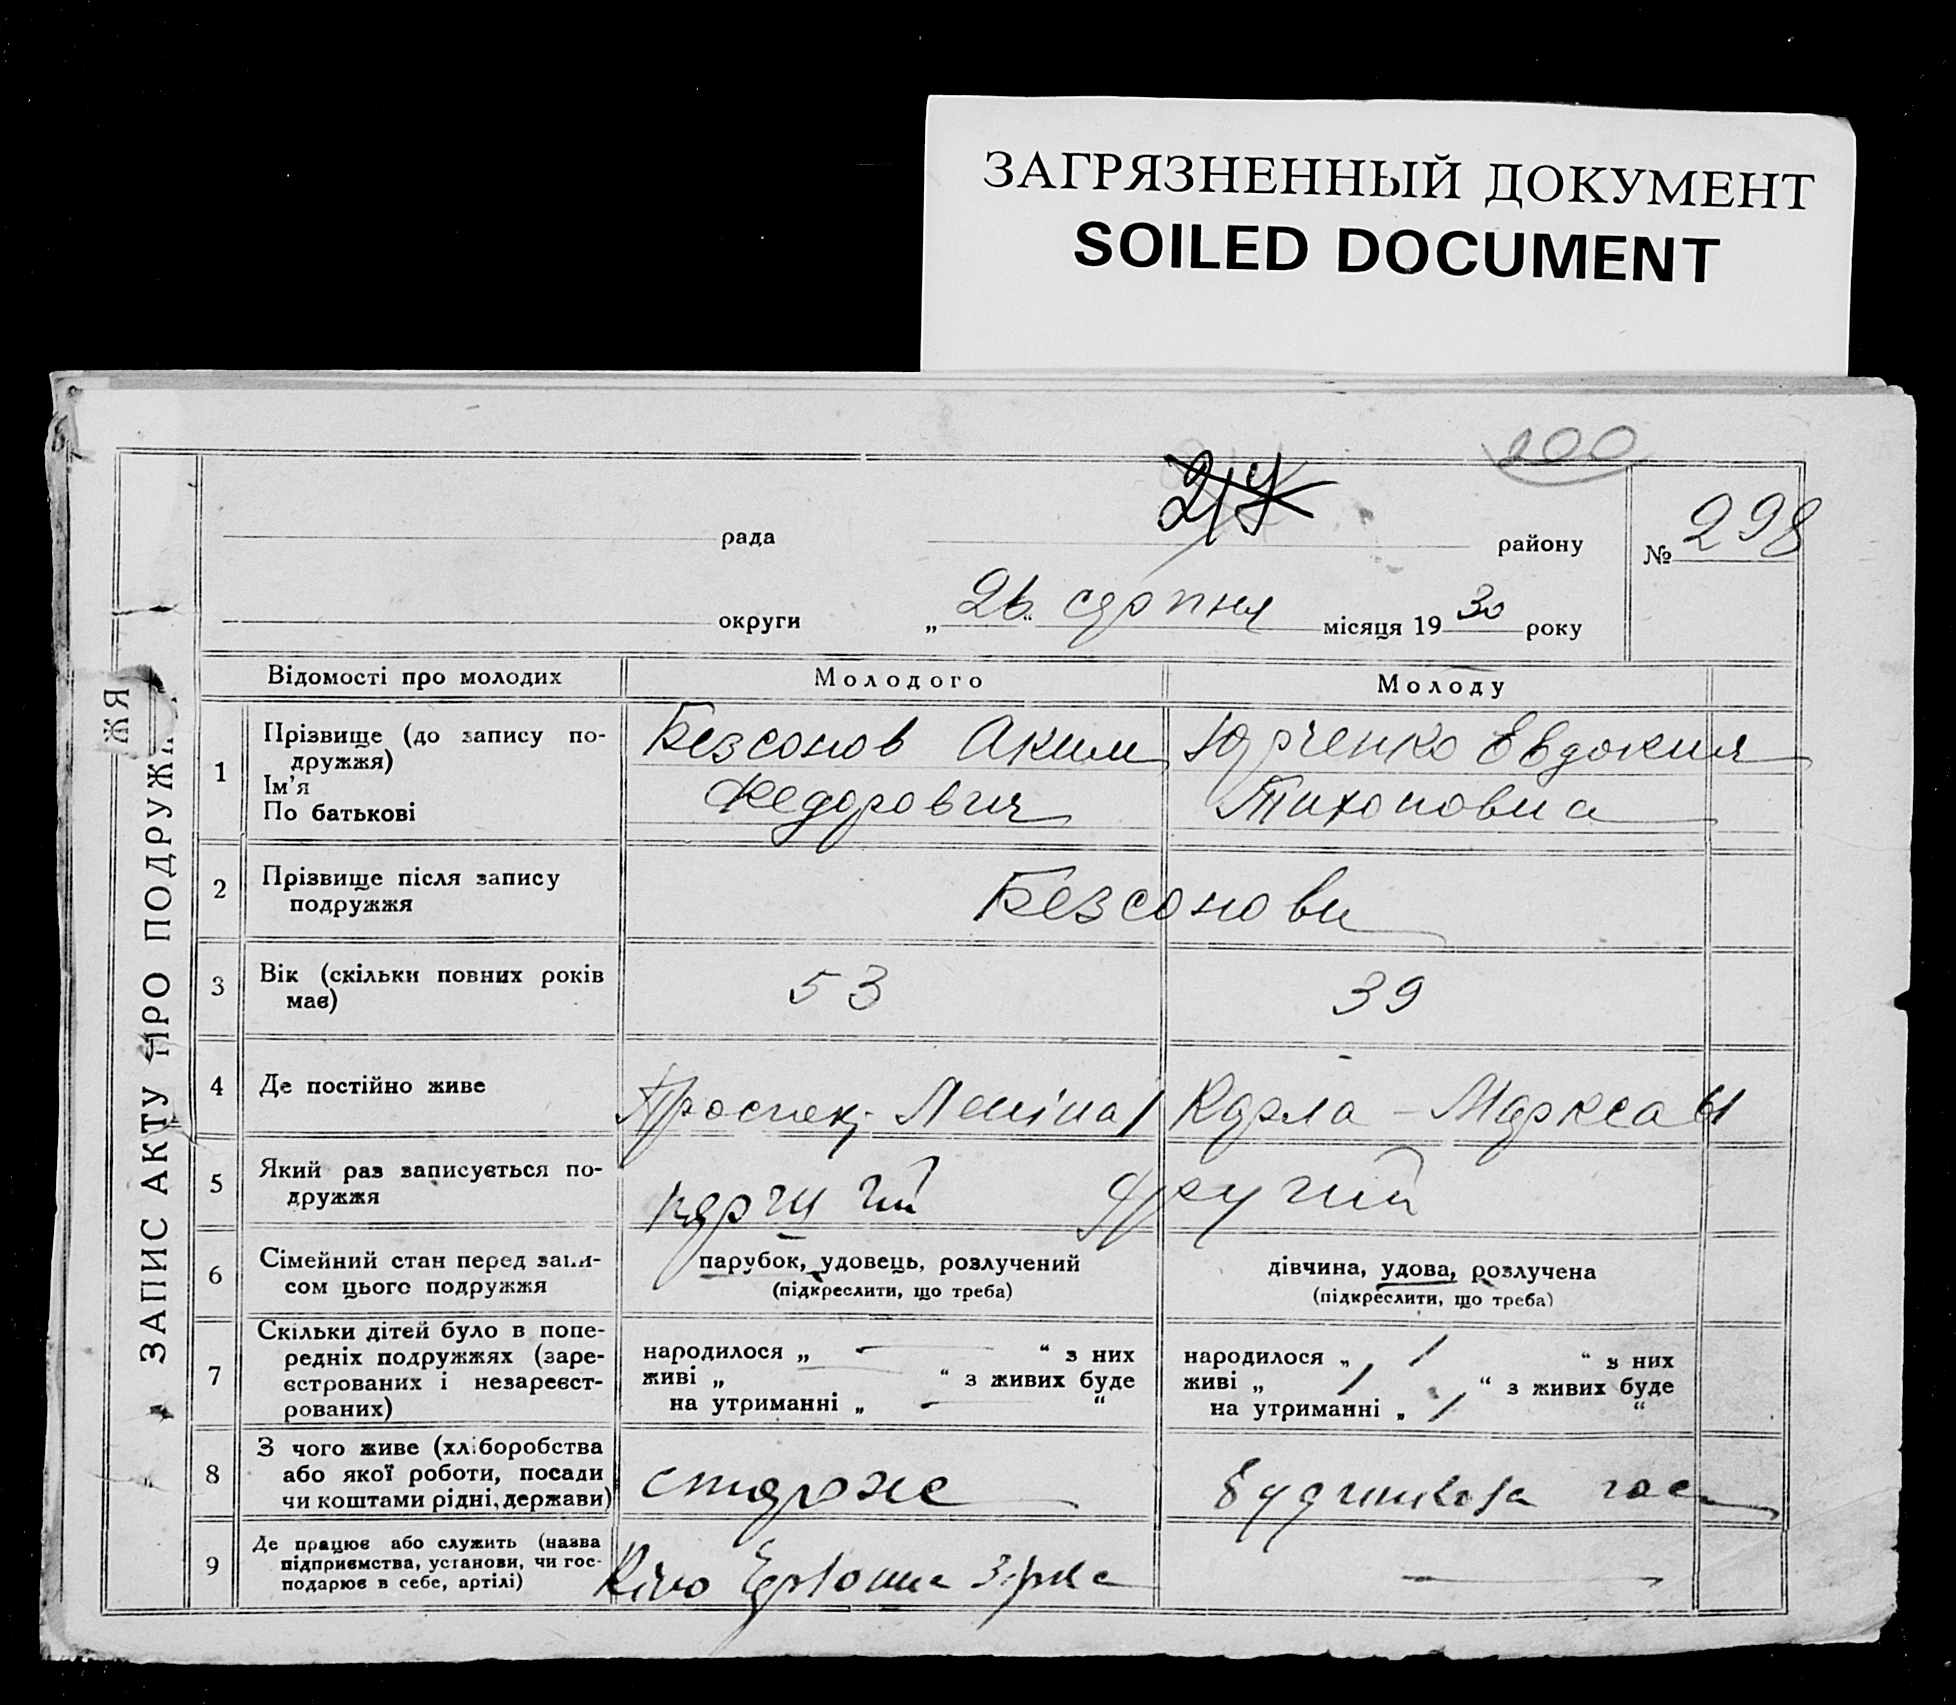 ЗАГРЯЗНЕННЫЙ ДОКУМЕНТ
SOILED DOCUMENT
200
рада
району
№ 298
округи
„ 26 “ серпня місяця 19 30 року
ЗАПИС АКТУ ПРО ПОДРУЖЖЯ
Відомості про молодих
Молодого
Молоду
1
Прізвище (до запису по-
дружжя)
Ім’я
По батькові
Безсонов Аким
Федорович
Юрченко Евдокия
Тихоновна
2
Прізвище після запису
подружжя
Безсонови
3
Вік (скільки повних років
має)
53
39
4
Де постійно живе
Проспек. Леніна 1
Карла - Маркса 61
5
Який раз записується по-
дружжя
перший
другий
6
Сімейний стан перед запи-
сом цього подружжя
парубок, удовець, розлучений
(підкреслити, що треба)
дівчина, удова, розлучена
(підкреслити, що треба)
7
Скільки дітей було в попе-
редніх подружжях (заре-
єстрованих і незареєст-
рованих)
народилося „ — “ з них
живі „ — “ з живих буде
на утриманні „ — “
народилося „ 1 “ з них
живі „ 1 “ з живих буде
на утриманні „ 1 “
8
З чого живе (хліборобства
або якої роботи, посади
чи коштами рідні, держави)
стороже
9
Де працює або служить (назва
підприємства, установи, чи гос-
подарює в себе, артілі)
Кіно Червона Зірка
—